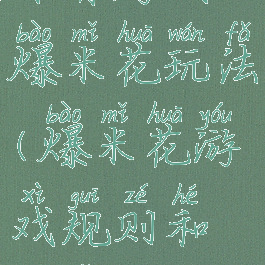 bào mǐ huā wán fǎ
爆米花玩法
bào mǐ huā yóu
(爆米花游
xì guī zé hé
戏规则和